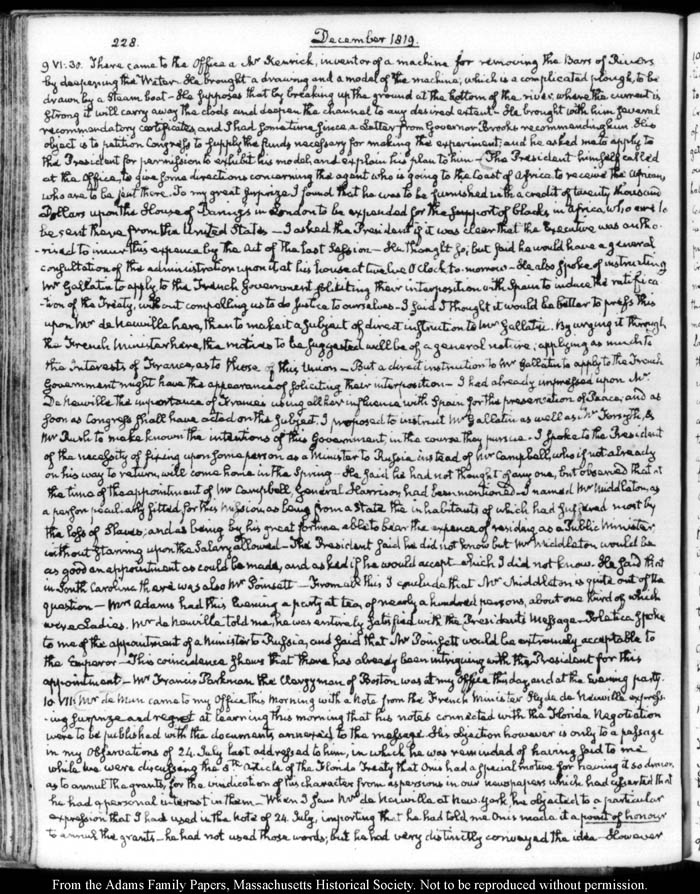 228.
December 1819.
9. VI: 30. There came to the Office a Mr Kenrick, inventor of a machine for removing the Bars of Rivers
by deepening the Water. He brought a drawing and a model of the machine, which is a complicated plough, to be
drawn by a Steam boat — He supposes that by breaking up the ground at the bottom of the river, where the current is
strong it will carry away the clods and deepen the channel to any desired extent — He brought with him several
recommendatory certificates, and I had some time since a Letter from Governor Brooks recommending him. His
object is to petition Congress to supply the funds necessary for making the experiment; and he asked me to apply to
the President for permission to exhibit his model, and explain his plan to him — The President himself called
at the Office, to give some directions concerning the agent who is going to the Coast of Africa to receive the Africans,
who are to be sent there. To my great surprize I found that he was to be furnished with a credit of twenty thousand
Dollars upon the House of Barings in London to be expended for the support of blacks in Africa, who are to
be sent there from the United States — I asked the President if it was clear that the Executive was autho-
-rised to incur this expence by the Act of the last Session — He thought so; but said he would have a general
consultation of the administration upon it at his house at twelve O'Clock to-morrow — He also spoke of instructing
Mr Gallatin to apply to the French Government soliciting their interposition with Spain to induce the ratifica-
-tion of the Treaty, without compelling us to do justice to ourselves — I said I thought it would be better to press this
upon Mr de Neuville here, than to make it a subject of direct instruction to Mr Gallatin. By urging it through
the French Minister here, the motives to be suggested will be of a general nature; applying as much to
the interests of France, as to those of this Union — But a direct instruction to Mr Gallatin to apply to the French
Government might have the appearance of soliciting their interposition — I had already impressed upon Mr
De Neuville the importance of France's using all her influence with Spain for the preservation of Peace, and as
soon as Congress shall have acted on the subject, I proposed to instruct Mr Gallatin as well as Mr Forsyth, &
Mr Rush to make known the intentions of this Government, in the course they pursue. I spoke to the President
of the necessity of fixing upon some person as a Minister to Russia instead of Mr Campbell, who if not already
on his way to return, will come home in the Spring — He said he had not thought of any one, but observed that at
the time of the appointment of Mr Campbell, General Harrison had been mentioned — I named Mr Middleton, as
a person peculiarly fitted for this mission, as being from a State the inhabitants of which had suffered most by
the loss of Slaves; and as being by his great fortune able to bear the expence of residing as a Public Minister,
without starving upon the Salary allowed — The President said he did not know but Mr Middleton would be
as good an appointment as could be made, and asked if he would accept — which I did not know. He said that
in South Carolina there was also Mr Poinsett — From all this I conclude that Mr Middleton is quite out of the
question — Mrs Adams had this Evening a party at tea, of nearly a hundred persons, about one third of which
were Ladies. Mr de Neuville told me, he was entirely satisfied with the President's Message — Poletica spoke
to me of the appointment of a Minister to Russia, and said that Mr Poinsett would be extremely acceptable to
the Emperor — This coincidence shews that there has already been intriguing with the President for this
appointment — Mr Francis Parkman the Clergyman of Boston was at my Office this day, and at the Evening party.
10. VII: Mr de Mun came to my Office this morning with a Note from the French Minister Hyde de Neuville express-
-ing surprize and regret at learning this morning that his notes connected with the Florida Negotiation
were to be published with the documents annexed to the message. His objection however is only to a passage
in my Observations of 24. July last addressed to him, in which he was reminded of having said to me
while we were discussing the 8th Article of the Florida Treaty that Onis had a special motive for having it so drawn
as to annul the grants, for the vindication of his character from aspersions in our Newspapers which had asserted that
he had a personal interest in them — When I saw Mr de Neuville at New-York he objected to a particular
expression that I had used in the Note of 24. July, importing that he had told me Onis made it a point of honour
to annul the grants — he had not used those words; but he had very distinctly conveyed the idea — However
From the Adams Family Papers, Massachusetts Historical Society. Not to be reproduced without permission.